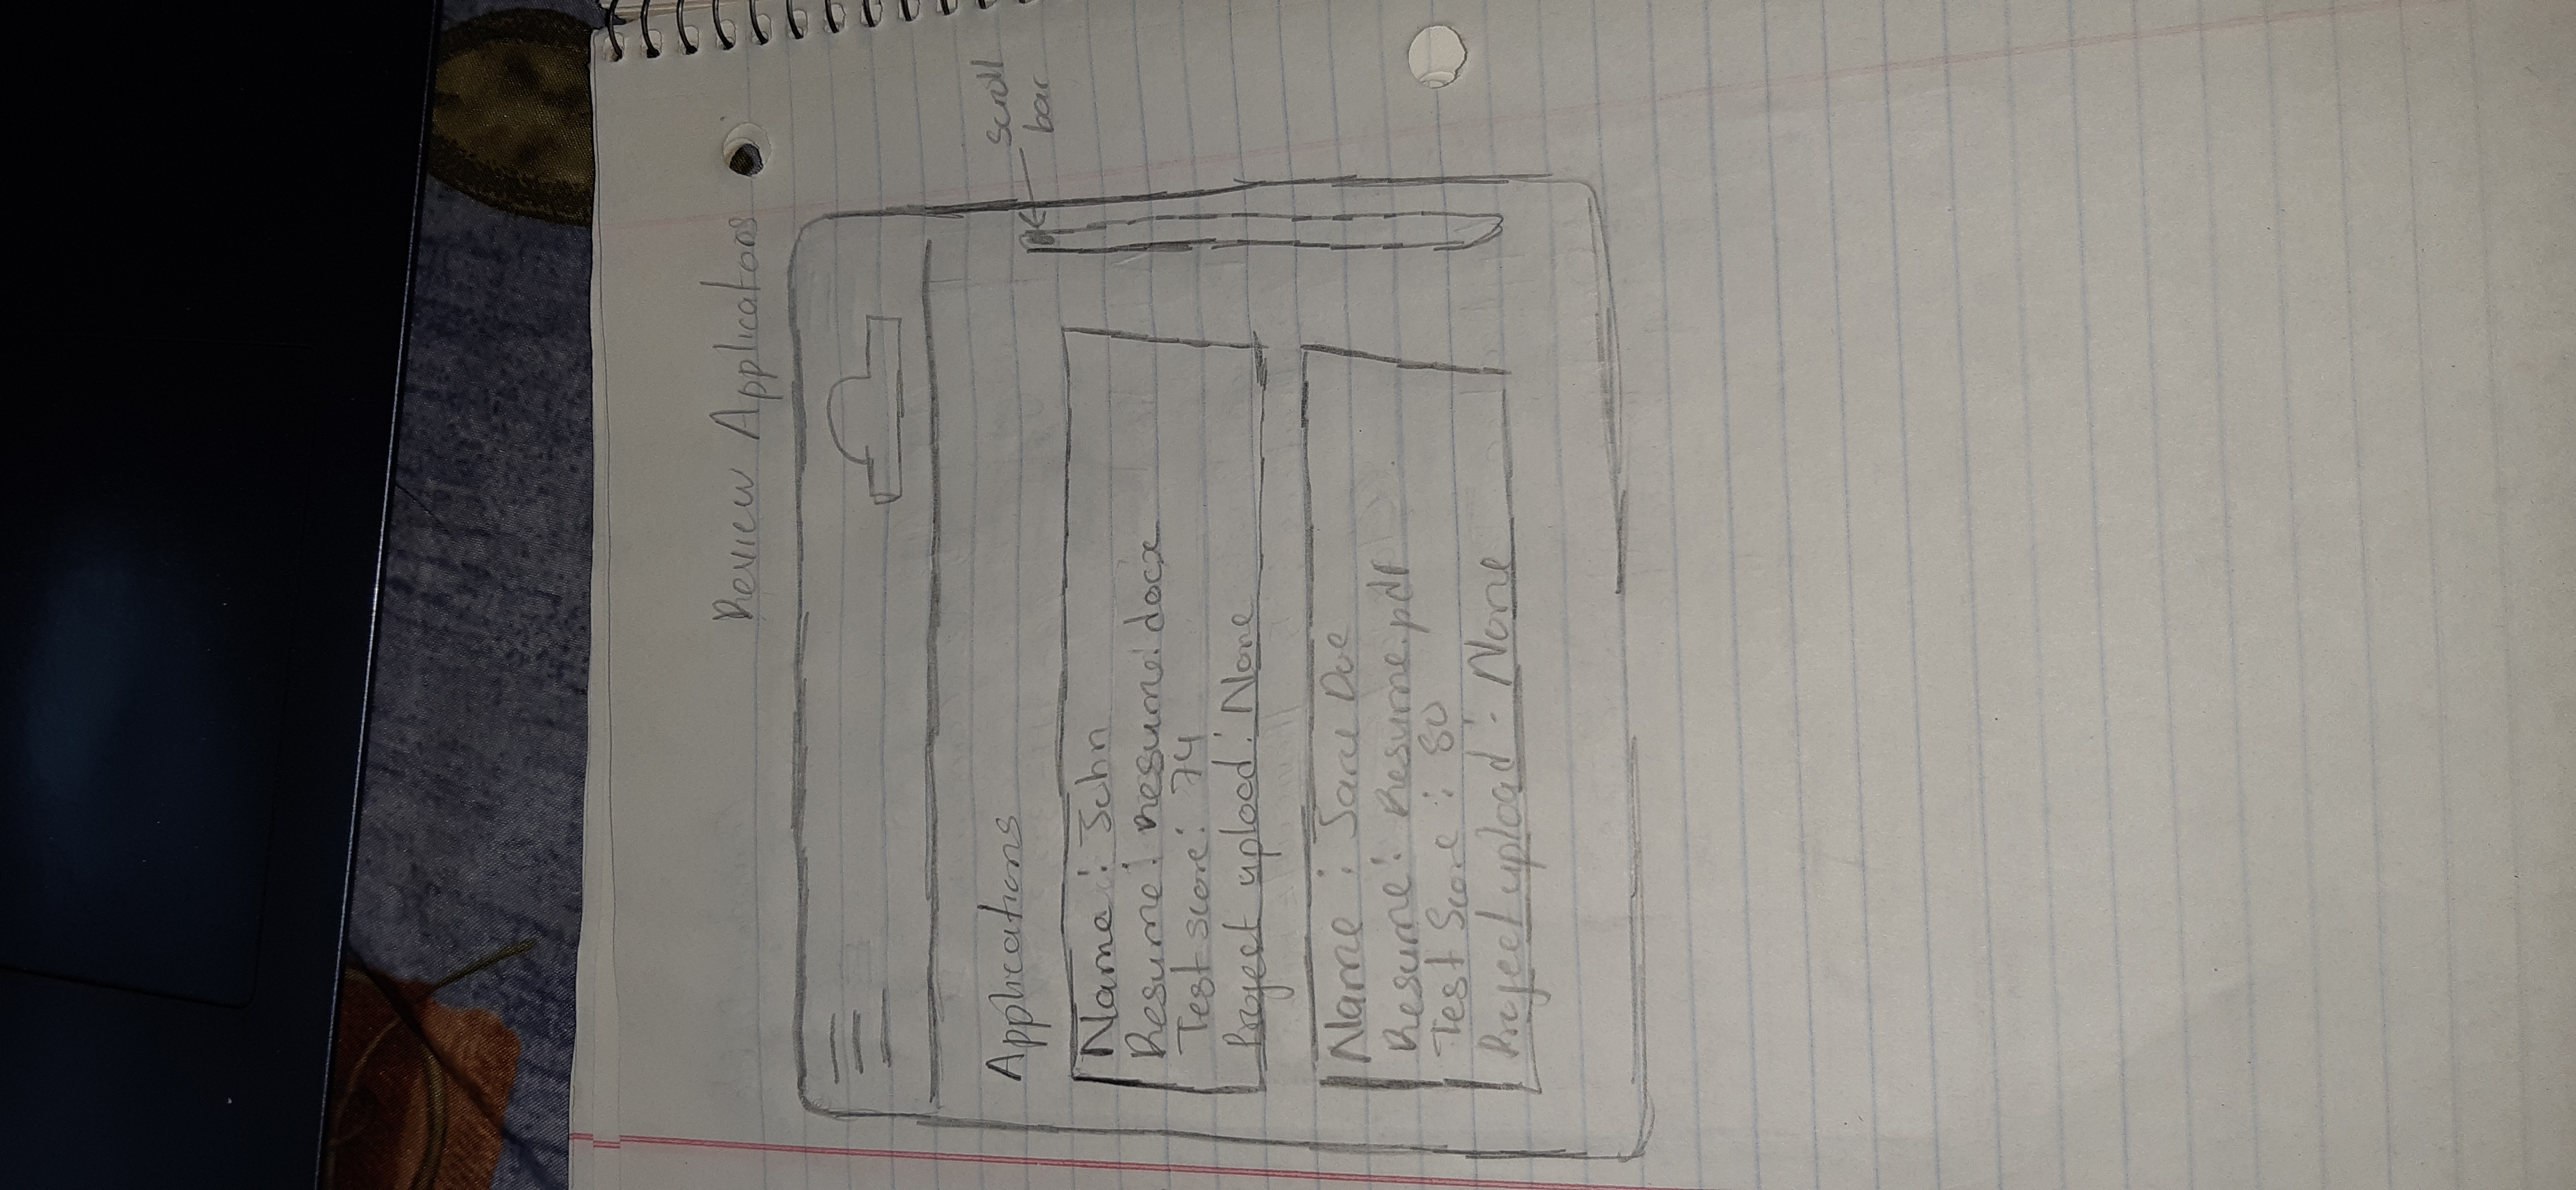 Review Applications
Applications
scroll
bar
Name : John
Resume: resume.docx
Test score: 74
Project upload: None
Name : Jane Doe
Resume: Resume.pdf
Test Score : 80
Project upload : None